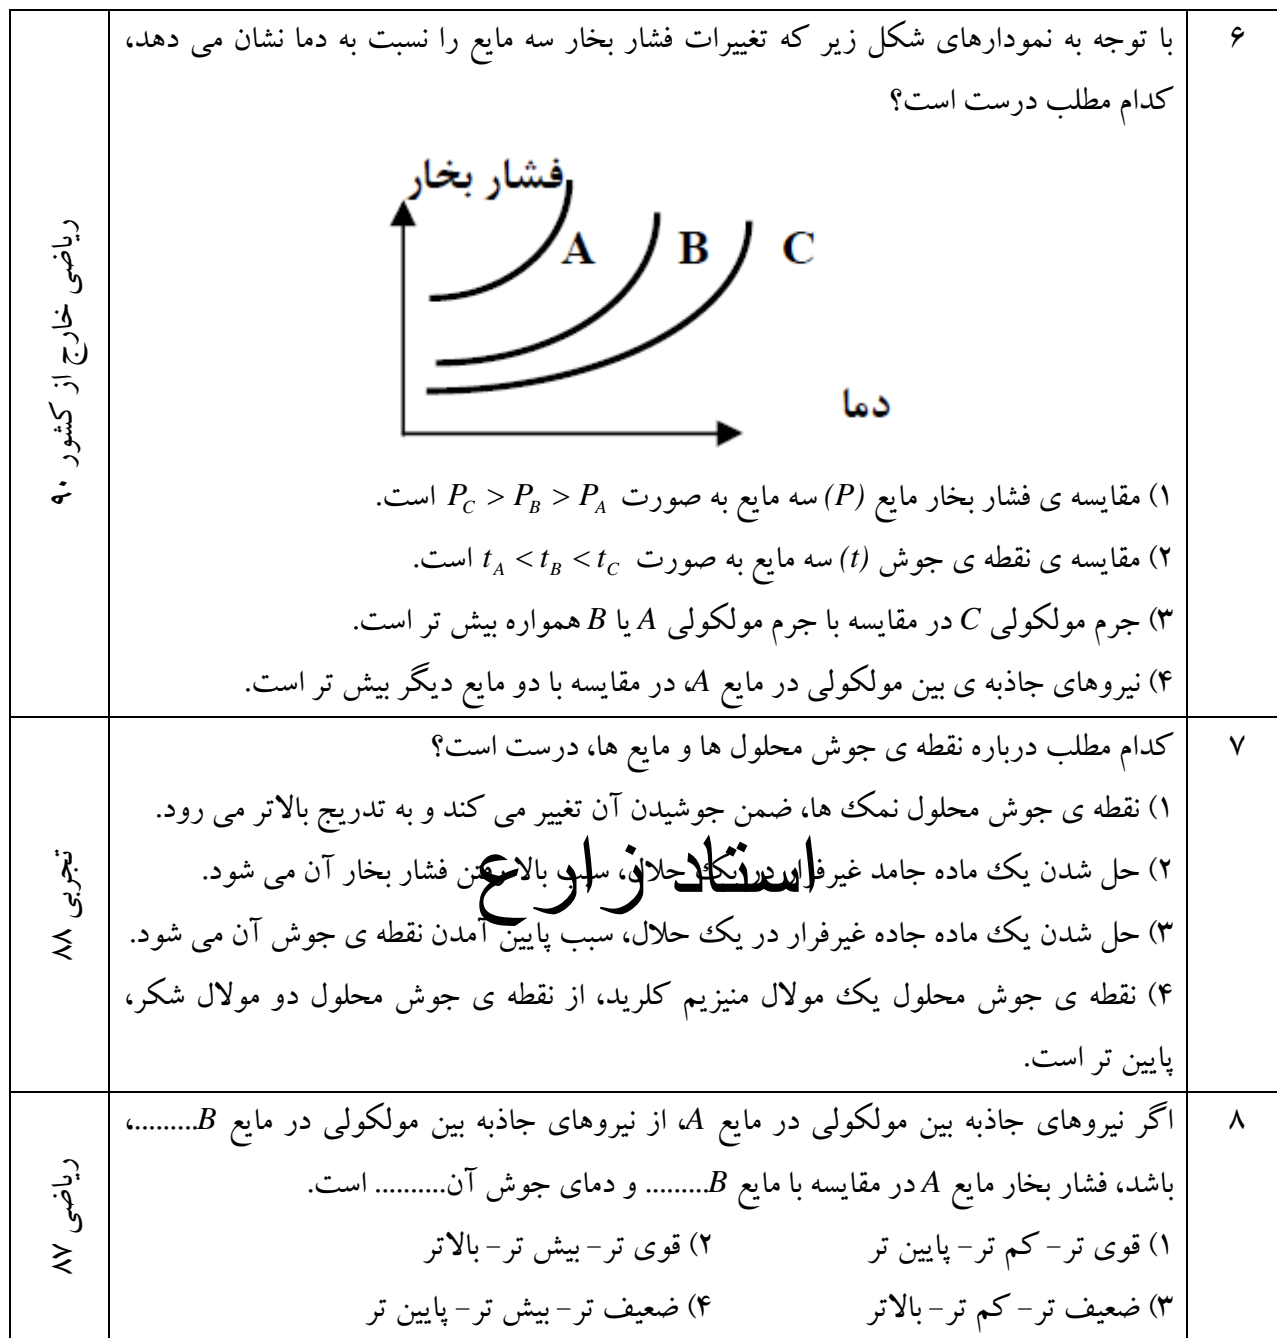 ۶
با توجه به نمودارهای شکل زیر که تغییرات فشار بخار سه مایع را نسبت به دما نشان می دهد،
کدام مطلب درست است؟
فشار بخار
A
B
C
دما
۱) مقایسه ی فشار بخار مایع (P) سه مایع به صورت P_C > P_B > P_A است.
۲) مقایسه ی نقطه ی جوش (t) سه مایع به صورت t_A < t_B < t_C است.
۳) جرم مولکولی C در مقایسه با جرم مولکولی A یا B همواره بیش تر است.
۴) نیروهای جاذبه ی بین مولکولی در مایع A، در مقایسه با دو مایع دیگر بیش تر است.
ریاضی خارج از کشور ۹۰
۷
کدام مطلب درباره نقطه ی جوش محلول ها و مایع ها، درست است؟
۱) نقطه ی جوش محلول نمک ها، ضمن جوشیدن آن تغییر می کند و به تدریج بالاتر می رود.
۲) حل شدن یک ماده جامد غیرفرار در یک حلال، سبب بالا رفتن فشار بخار آن می شود.
استاد زارع
۳) حل شدن یک ماده جاده غیرفرار در یک حلال، سبب پایین آمدن نقطه ی جوش آن می شود.
۴) نقطه ی جوش محلول یک مولال منیزیم کلرید، از نقطه ی جوش محلول دو مولال شکر،
پایین تر است.
تجربی ۸۸
۸
اگر نیروهای جاذبه بین مولکولی در مایع A، از نیروهای جاذبه بین مولکولی در مایع B.........،
باشد، فشار بخار مایع A در مقایسه با مایع B......... و دمای جوش آن.......... است.
۱) قوی تر- کم تر- پایین تر ۲) قوی تر- بیش تر- بالاتر
۳) ضعیف تر- کم تر- بالاتر ۴) ضعیف تر- بیش تر- پایین تر
ریاضی ۸۷